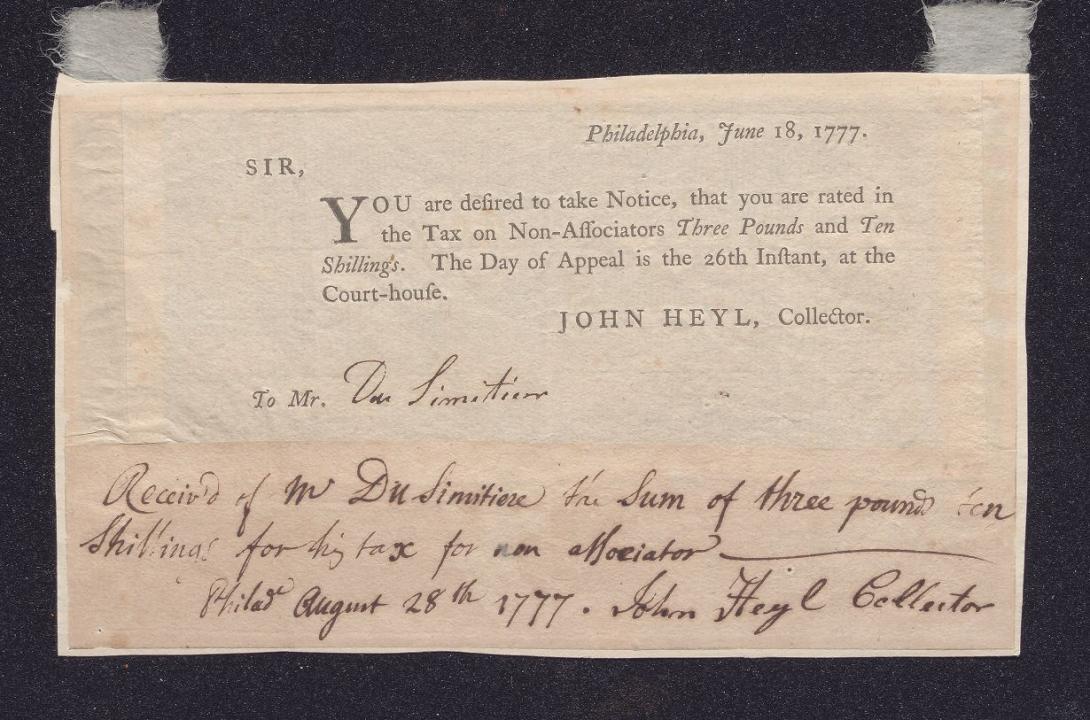 Philadelphia, June 18, 1777.
SIR,
YOU are deſired to take Notice, that you are rated in
the Tax on Non-Aſſociators Three Pounds and Ten
Shillings. The Day of Appeal is the 26th Inſtant, at the
Court-houſe.
JOHN HEYL, Collector.
To Mr. Du Simitier
Receiv'd of Mr Du Simitiere the Sum of three pounds ten
Shillings for his tax for non aſſociator
Philada August 28th 1777. John Heyl Collector